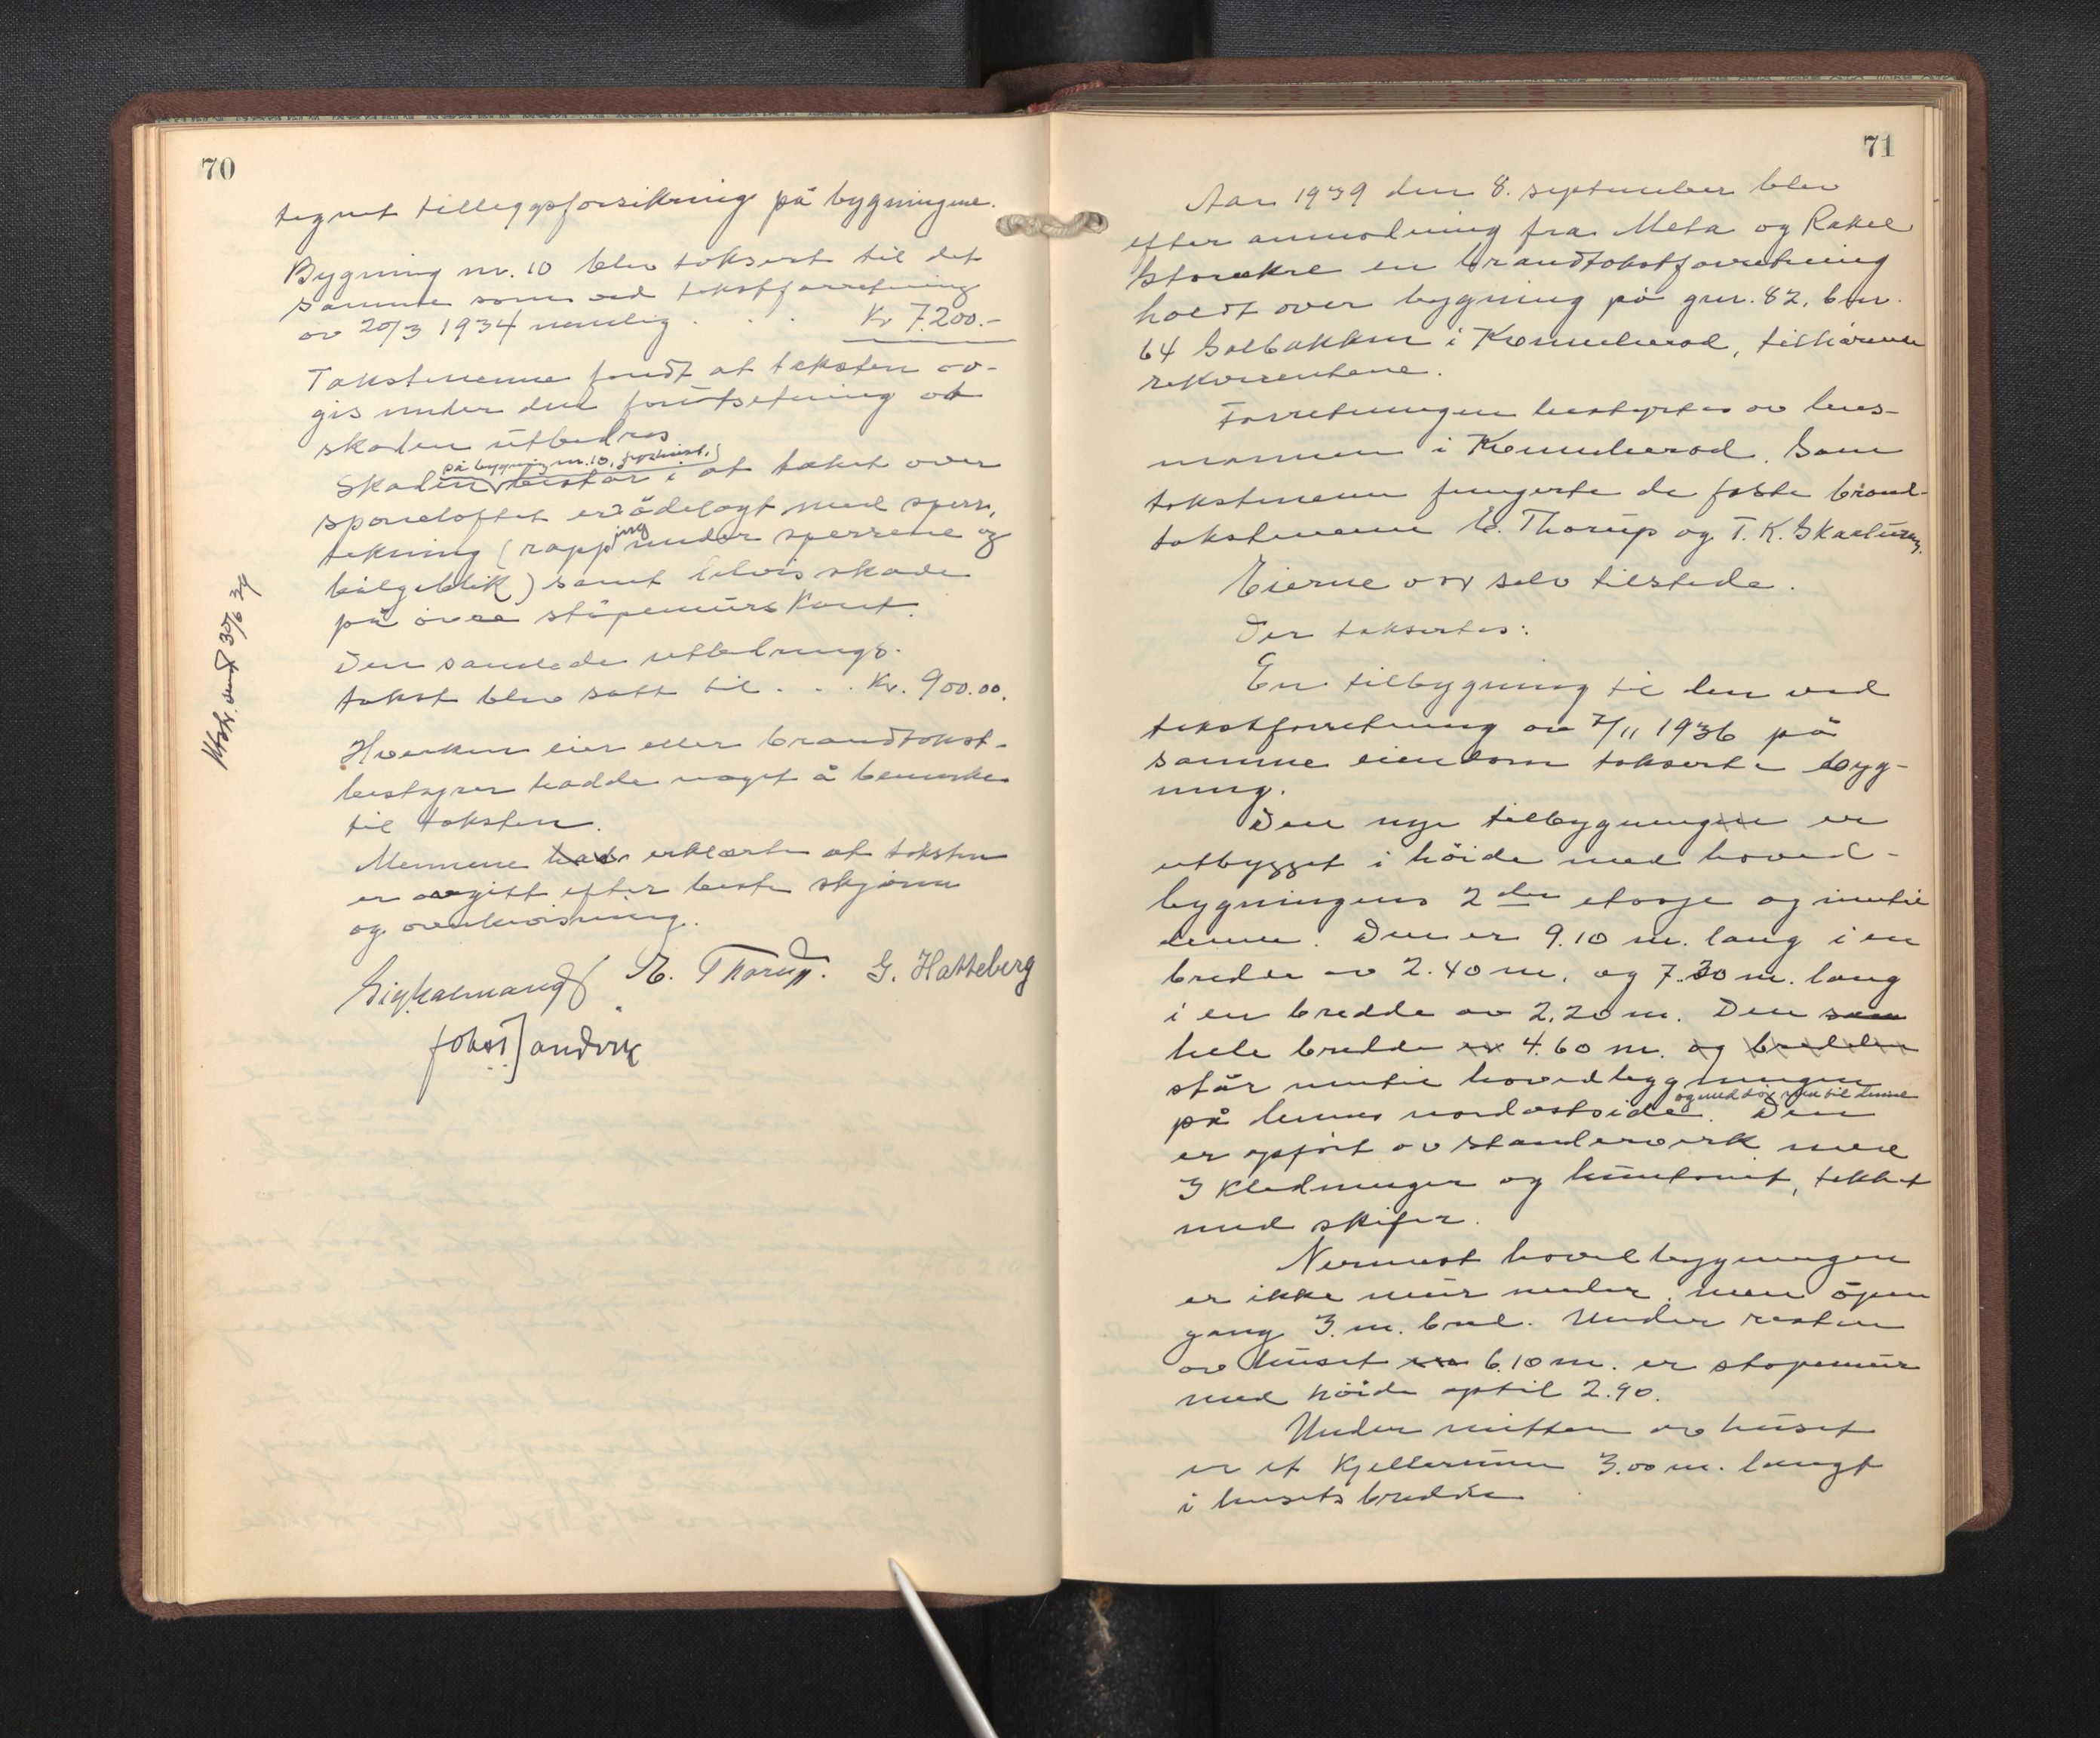 70
tegnet tilleggsforsikring på bygningene.
Bygning nr. 10 blev taksert til det
samme som ved takstforretning
av 20/3 1934 nemlig . . . Kr 7.200.-
Takstmennene fandt at taksten av-
gis under den forutsetning at
skaden utbedres
på bygning nr. 10, fyrhuset,
Skaden består i at taket over
sponeloftet er ödelagt med sperr,
tekning (rapping under sperrene og
bølgeblik) samt delvis skade
på övre stöpemurs Kant.
Den samlede utbedrings-
takst blev satt til . . . Kr. 900.00.
Hverken eier eller brandtakst-
bestyrer hadde noget å bemerke
til taksten.
Mennene erklærte at taksten
er avgitt efter beste skjönn
og overbevisning.
E. Thorup. G. Hatteberg
30/6 34
71
Aar 1939 den 8. september blev
efter anmodning fra Meta og Rakel
Storækre en brandtakstforretning
holdt over bygning på gnr. 82, bnr.
64 Solbakken i Kvinnherad, tilhörende
rekvirentene.
Forretningen bestyrtes av lens-
mannen i Kvinnherad. Som
takstmenn fungerte de faste brand-
takstmenn E. Thorup og T. K. Skarturey.
Eierne var selv tilstede.
Der taksertes:
En tilbygning til den ved
takstforretning av 7/11 1936 på
samme eiendom takserte byg-
ning.
Den nye tilbygningen er
utbygget i höide med hoved-
bygningens 2den etasje og inntil
denne. Den er 9.10 m. lang i en
bredde av 2.40 m. og 7.30 m. lang
i en bredde av 2.20 m. Den som
hele bredde er 4.60 m. og bredden
står inntil hovedbygningen
og med dör inn til denne
på dennes nordostside. Den
er opfört av standerverk med
3 kledninger og huntonit, tekket
med skifer.
Nermest hovedbygningen
er ikke mur under, men åpen
gang 3 m. bred. Under resten
av huset 6.10 m. er stöpemur
med höide optil 2.90.
Under midten av huset
er et Kjellerrum 3.00 m. langt
i husets bredde